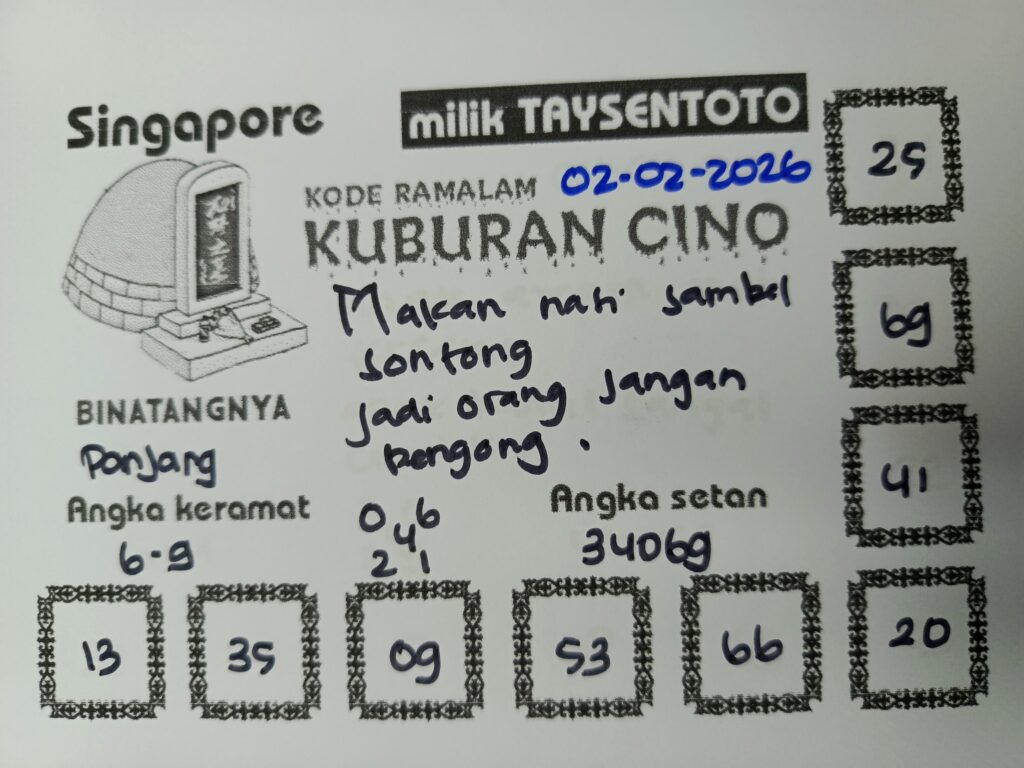 Singapore
milik TAYSENTOTO
KODE RAMALAM 02-02-2026
KUBURAN CINO
Makan nasi sambel
sontong
jadi orang jangan
bengong.
BINATANGNYA
Panjang
Angka keramat
6-9
0 6
4
2 1
Angka setan
34069
25
69
41
20
13 35 09 53 66